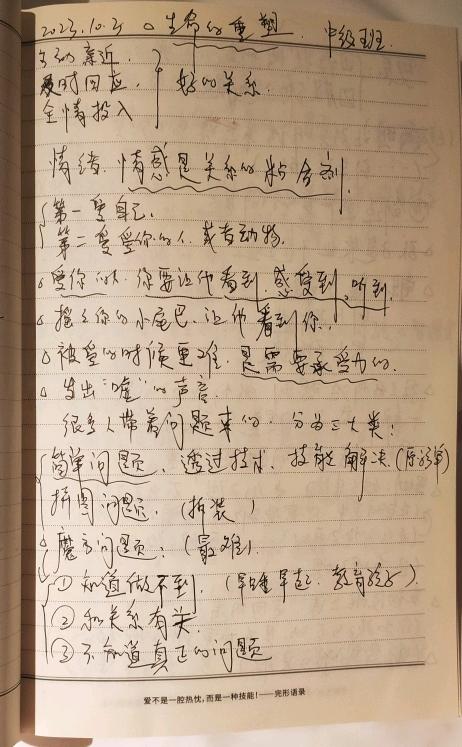 2023.10.21 △生命的重塑. 中级班.
主动亲近.
及时回应. 好的关系.
全情投入
情绪.情感是关系的粘合剂.
第一爱自己.
第二爱爱你的人.或者动物.
△爱你的人.你要让他看到.感受到.听到.
△摇摇你的小尾巴.让他看到你.
△被爱的时候更难.是需要承受力的.
△发出“嘘”的声音.
很多人带着问题来的.分为三大类:
简单问题.透过技术.技能解决.
拼图问题.(拆装)
魔方问题:(最难).
①知道做不到.(早睡早起.教育孩子).
②和关系有关.
③不知道真正的问题
爱不是一腔热忱,而是一种技能!——完形语录